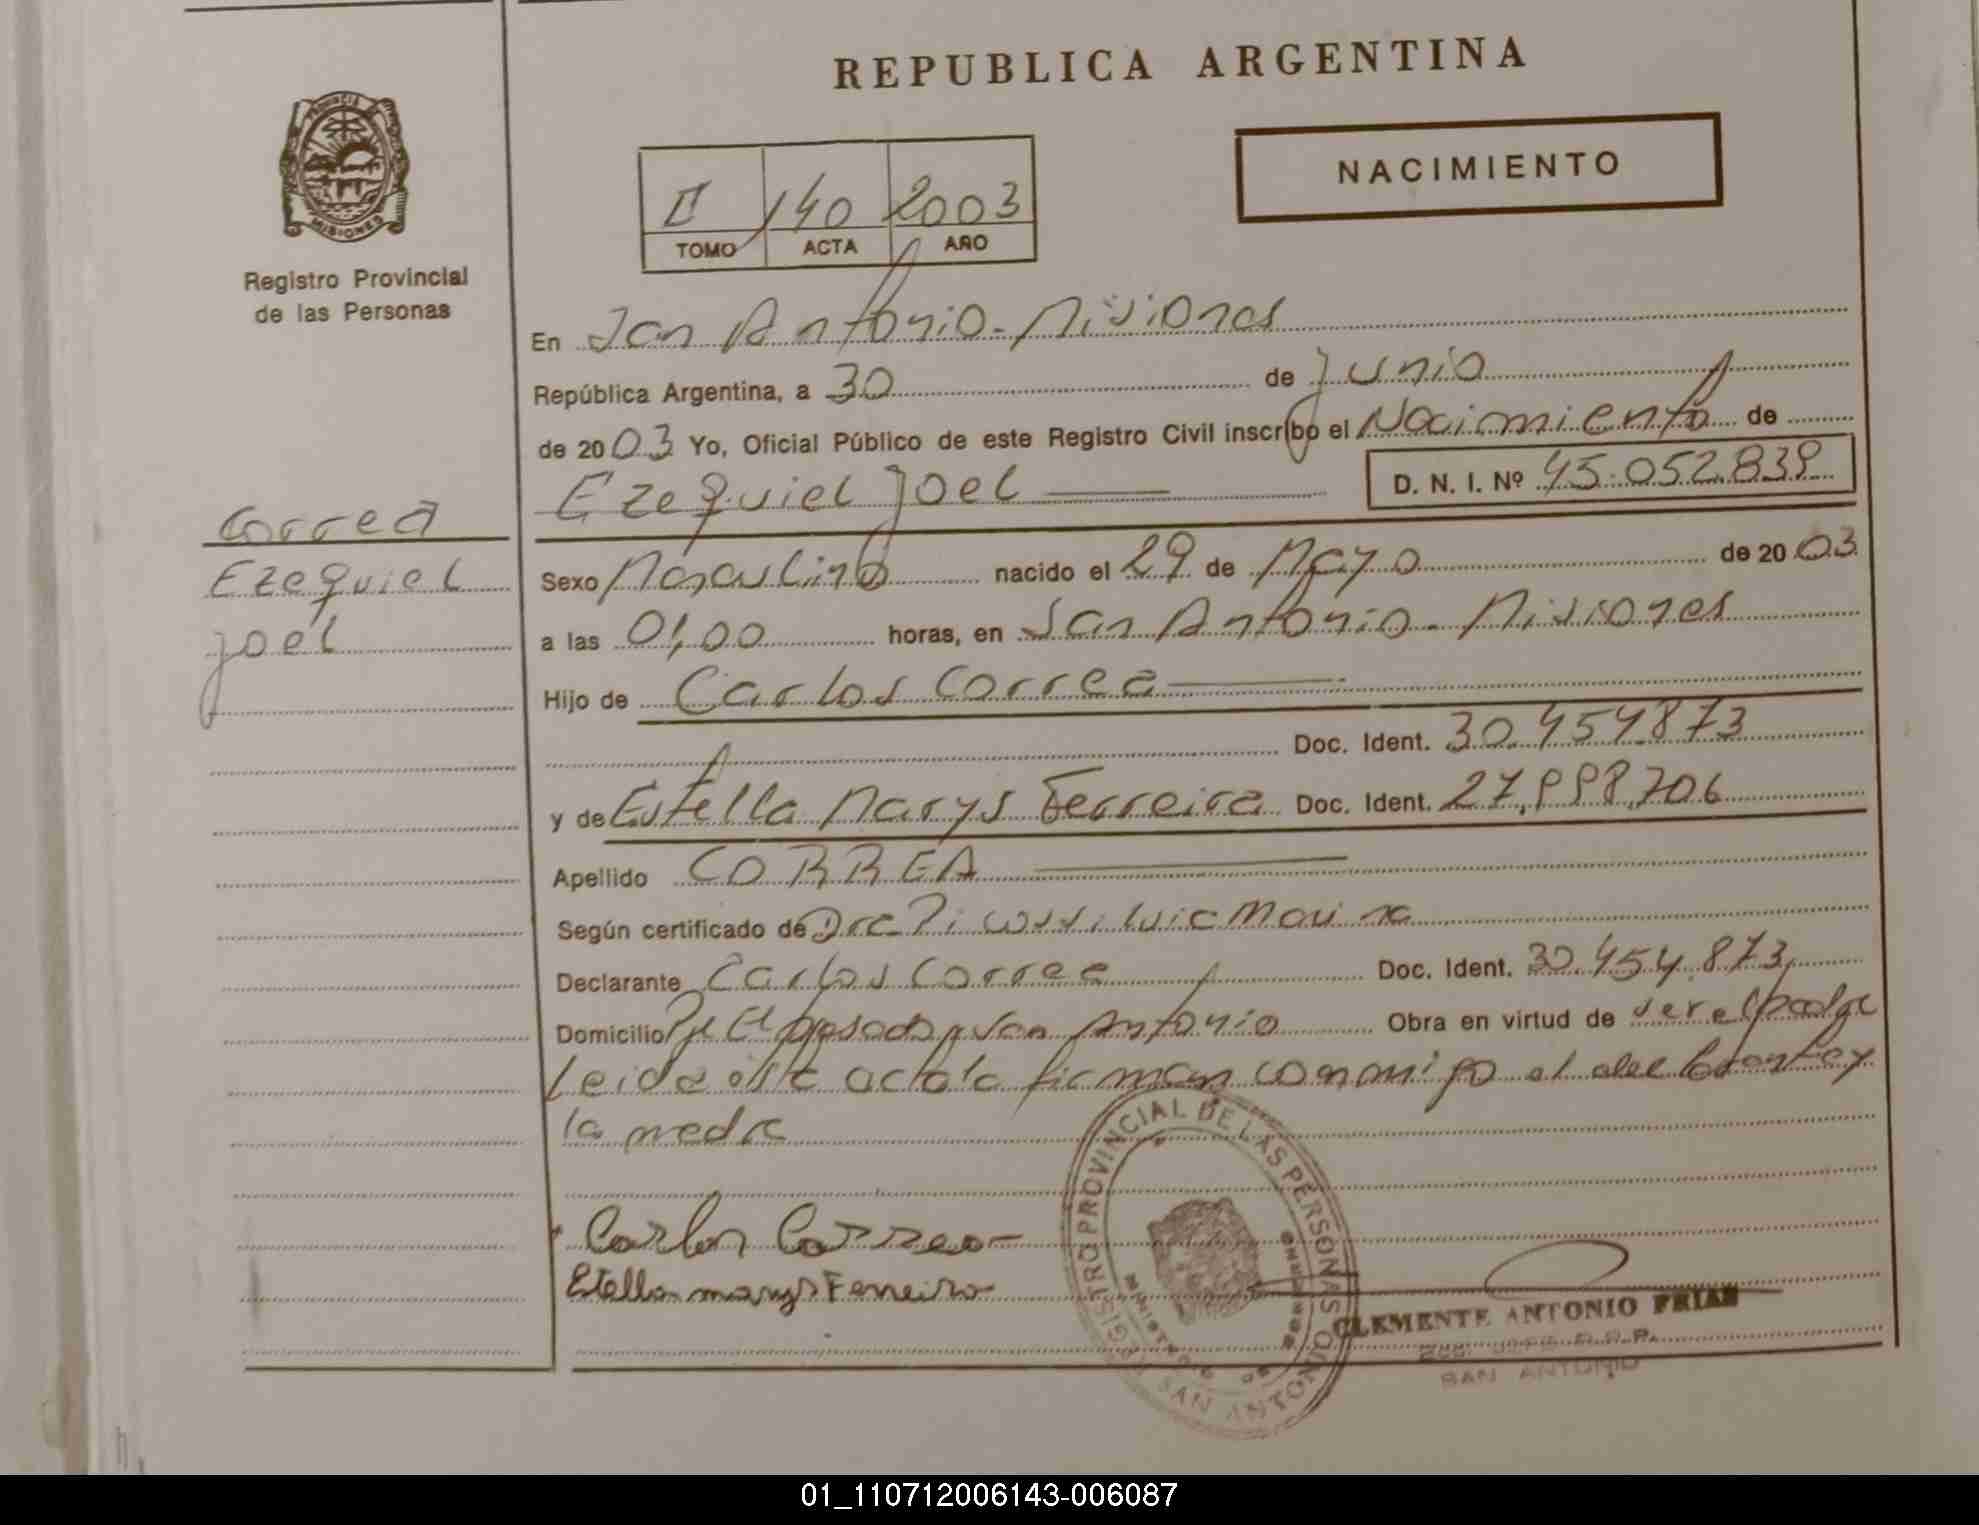 REPUBLICA ARGENTINA
NACIMIENTO
II 140 2003
TOMO ACTA AÑO
PROVINCIA
MISIONES
Registro Provincial
de las Personas
En San Antonio - Misiones
República Argentina, a 30 de Junio
de 2003 Yo, Oficial Público de este Registro Civil inscribo el Nacimiento de
Ezequiel Joel D. N. I. Nº 45.052.839
Correa
Ezequiel
Joel
Sexo Masculino nacido el 29 de Mayo de 2003
a las 01,00 horas, en San Antonio - Misiones
Hijo de Carlos Correa
Doc. Ident. 30.454.873
y de Estella Marys Ferreira Doc. Ident. 27.998.706
Apellido CORREA
Según certificado de Dra
Declarante Carlos Correa Doc. Ident. 30.454.873
Domicilio San Antonio Obra en virtud de ser el padre
Leida esta acta la firman conmigo el declarante y
la madre
Carlos Correa
Estella marys Ferreira
REGISTRO PROVINCIAL DE LAS PERSONAS
MINISTERIO DE GOBIERNO
SAN ANTONIO
CLEMENTE ANTONIO FRIAS
SAN ANTONIO
01_110712006143-006087